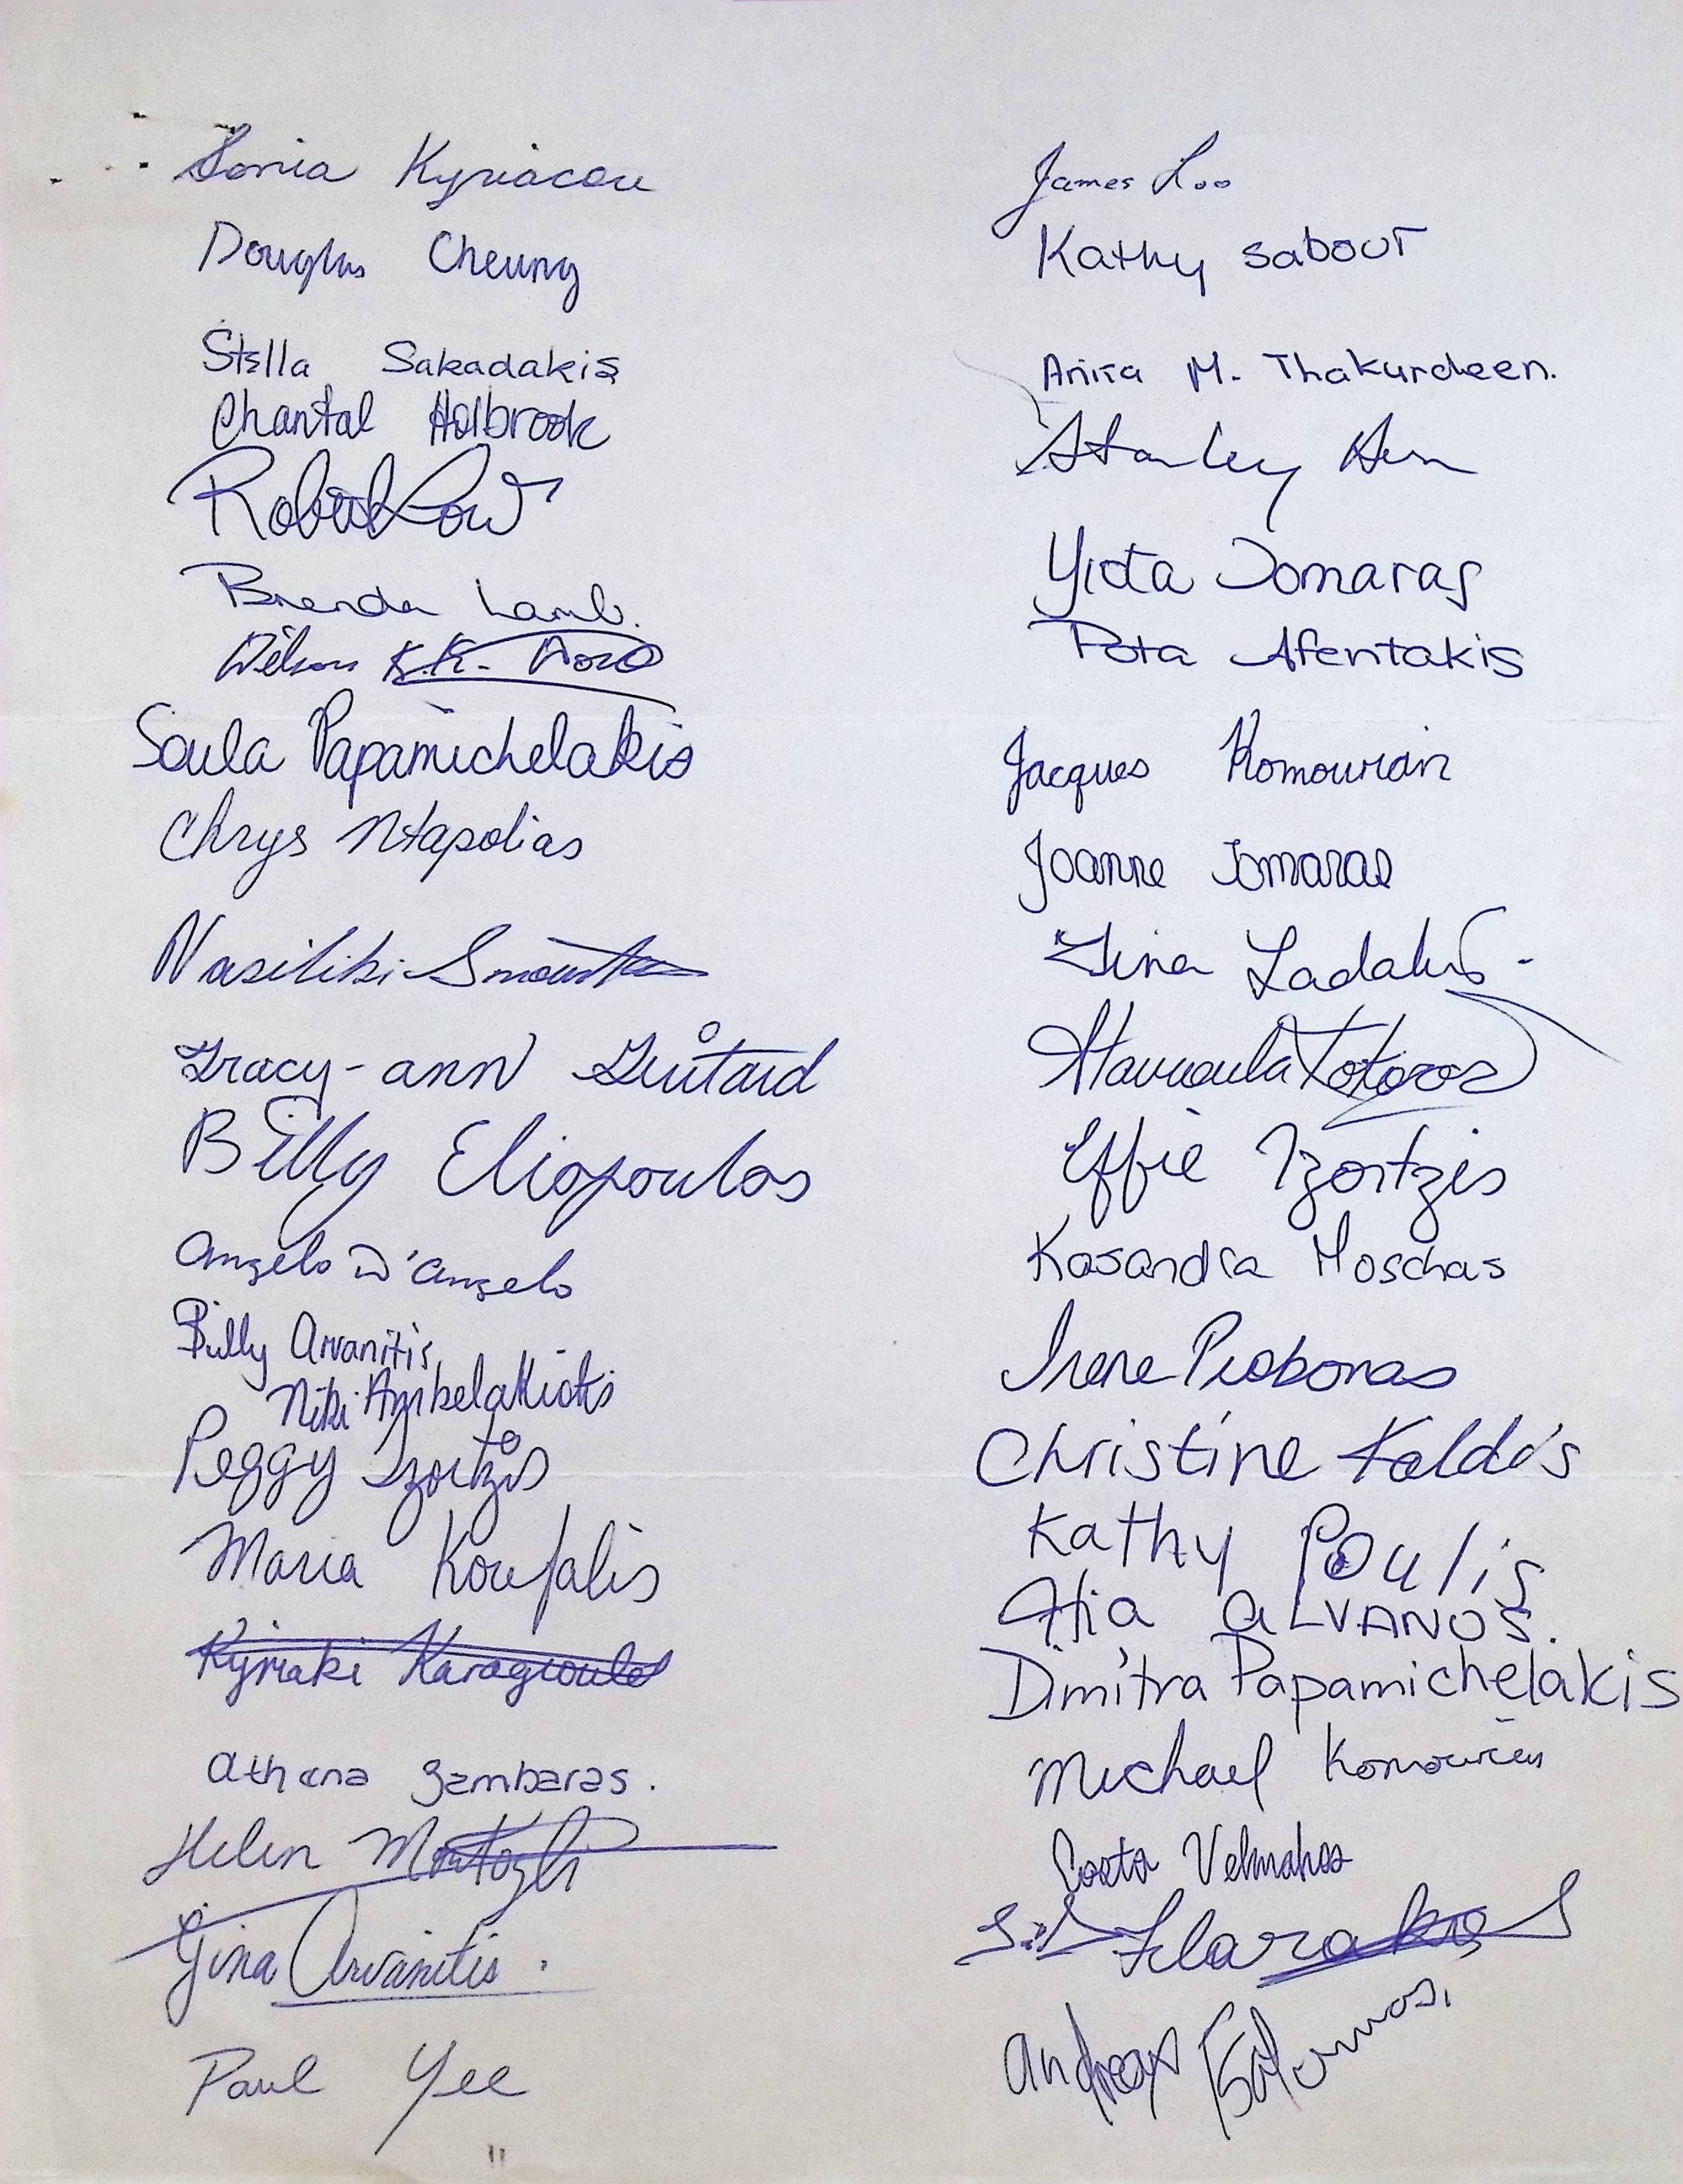 Sonia Kyriacou
Douglas Cheung
Stella Sakadakis
Chantal Holbrook
Robert Low
Brenda Lamb.
Wilson K.K.
Soula Papamichelakis
Chrys Ntapolias
Vasiliki
Tracy-ann Guitard
Billy Eliopoulos
Angelo D'Angelo
Billy Arvanitis
Niki Ambelakiotis
Peggy Tzortzis
Maria Koufalis
Kyriaki
Athena Zambaras.
Helen
Gina Arvanitis.
Paul Yee
James Loo
Kathy Sabout
Anisa M. Thakurdeen.
Stanley
Yiota Tomaras
Pota Afentakis
Jacques Komourian
Joanne Tomaras
Ladakis
Stavroula
Effie Tzortzis
Kasandra Moschas
Irene Probonas
Christine Kaldis
Kathy Poulis
ALVANOS.
Dimitra Papamichelakis
Michael Komourian
Costa Velmahos
Andreas